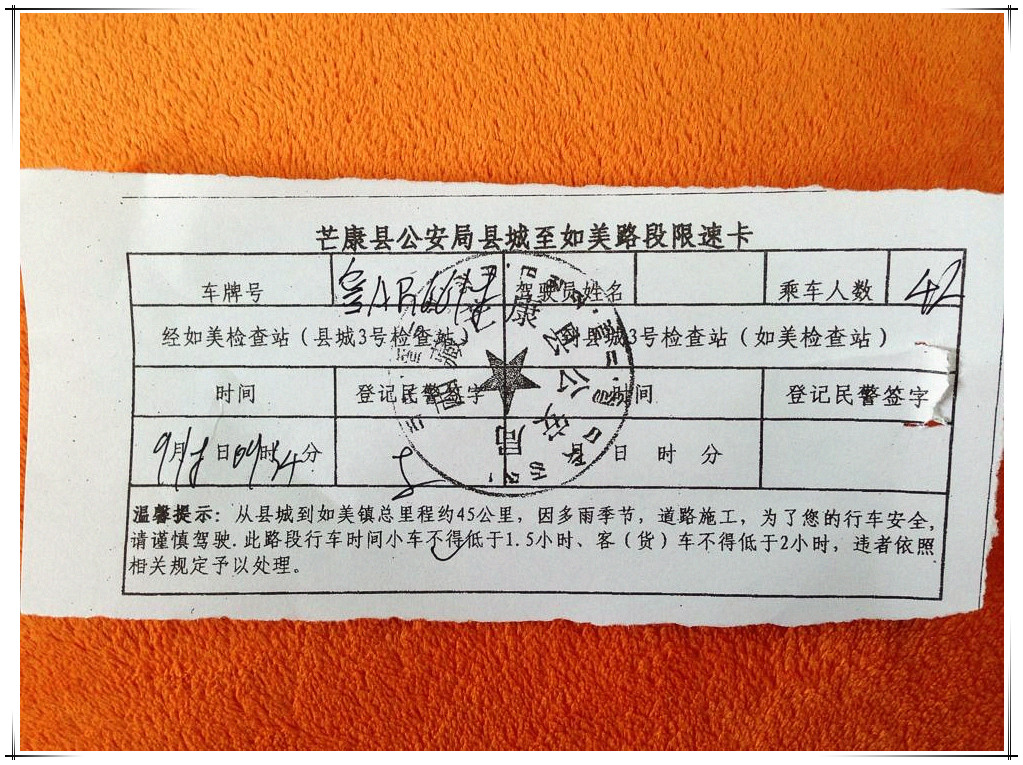 芒康县公安局县城至如美路段限速卡
车牌号 驾驶员姓名 乘车人数 42
经如美检查站（县城3号检查站 县城3号检查站（如美检查站）
时间 登记民警签字 时间 登记民警签字
9月 日 09时 24分 日 时 分
温馨提示：从县城到如美镇总里程约45公里，因多雨季节，道路施工，为了您的行车安全，
请谨慎驾驶.此路段行车时间小车不得低于1.5小时、客（货）车不得低于2小时，违者依照
相关规定予以处理。